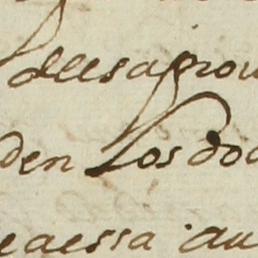 desagrou
den Los do
eaessa au